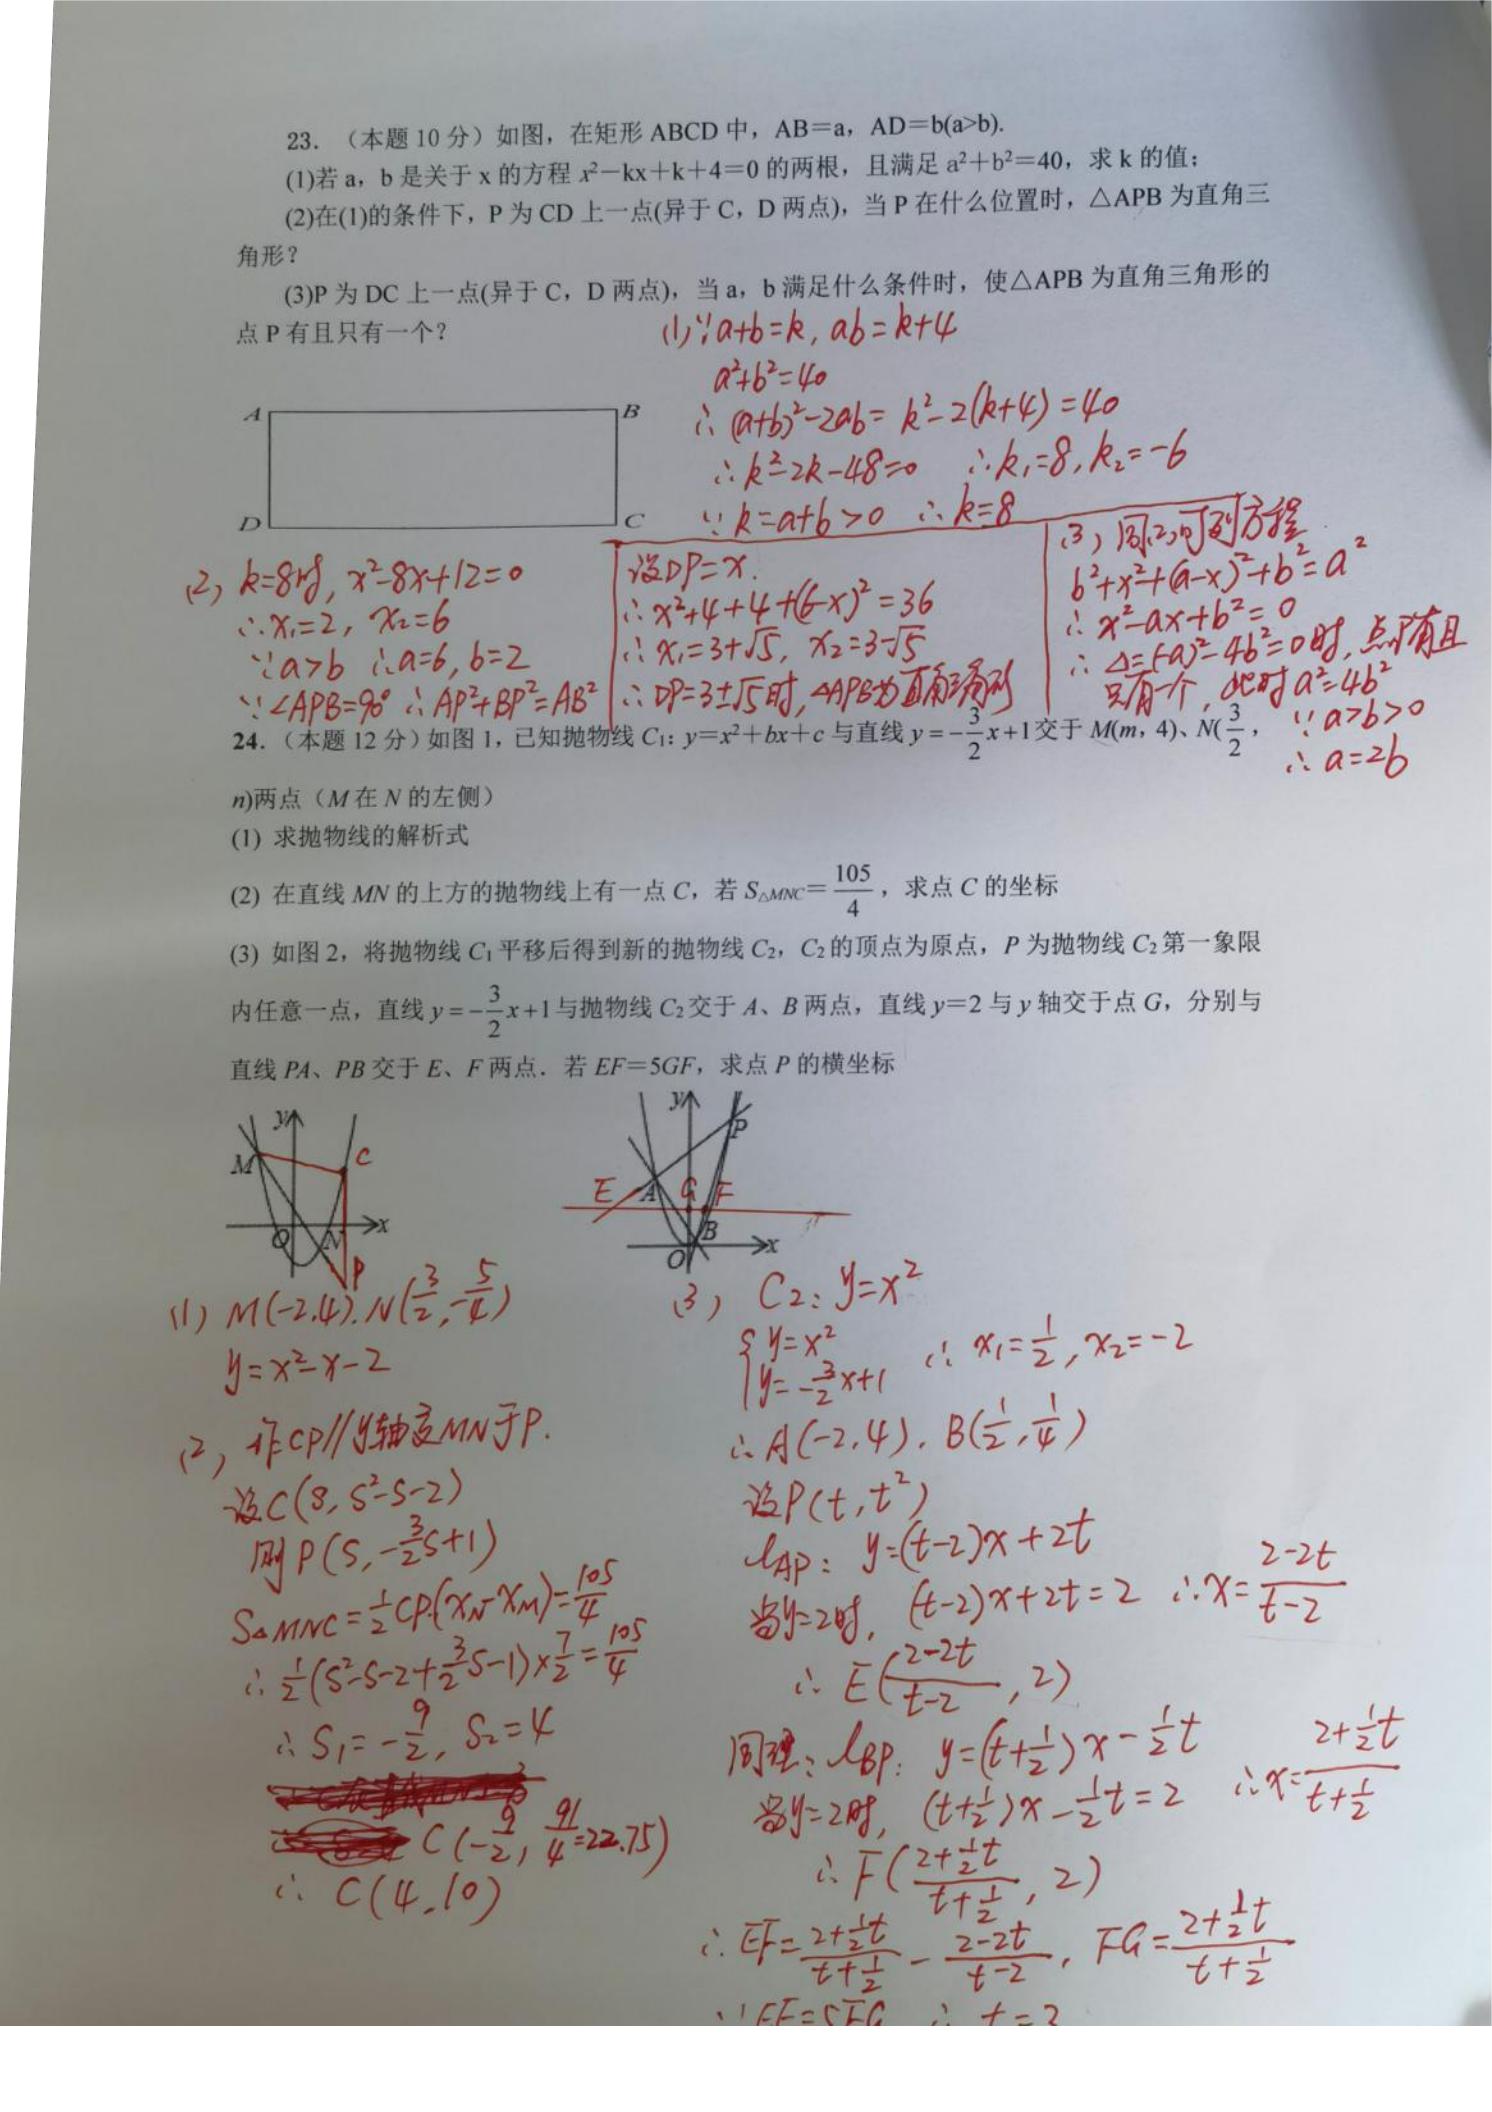 23．（本题10分）如图，在矩形ABCD中，AB＝a，AD＝b(a>b).
(1)若a，b是关于x的方程x²－kx＋k＋4＝0的两根，且满足a²＋b²＝40，求k的值；
(2)在(1)的条件下，P为CD上一点(异于C，D两点)，当P在什么位置时，△APB为直角三
角形？
(3)P为DC上一点(异于C，D两点)，当a，b满足什么条件时，使△APB为直角三角形的
点P有且只有一个？
(1)∵a+b=k, ab=k+4
a²+b²=40
∴(a+b)²-2ab=k²-2(k+4)=40
∴k²-2k-48=0 ∴k₁=8, k₂=-6
∵k=a+b>0 ∴k=8
A
B
D
C
(2) k=8时, x²-8x+12=0
∴x₁=2, x₂=6
∵a>b ∴a=6, b=2
∵∠APB=90° ∴AP²+BP²=AB²
设DP=x.
∴x²+4+4+(6-x)²=36
∴x₁=3+√5, x₂=3-√5
∴DP=3±√5时, △APB为直角三角形
(3) 同(2)可列方程
b²+x²+(a-x)²+b²=a²
∴x²-ax+b²=0
∴△=(-a)²-4b²=0时, 点P有且
只有一个, 此时a²=4b²
∵a>b>0
∴a=2b
24．（本题12分）如图1，已知抛物线C₁：y＝x²＋bx＋c与直线y＝－3/2x＋1交于M(m，4)、N(3/2，
n)两点（M在N的左侧）
(1) 求抛物线的解析式
(2) 在直线MN的上方的抛物线上有一点C，若S△MNC＝105/4，求点C的坐标
(3) 如图2，将抛物线C₁平移后得到新的抛物线C₂，C₂的顶点为原点，P为抛物线C₂第一象限
内任意一点，直线y＝－3/2x＋1与抛物线C₂交于A、B两点，直线y＝2与y轴交于点G，分别与
直线PA、PB交于E、F两点．若EF＝5GF，求点P的横坐标
y
M
C
x
O
N
P
y
P
E
A
G
F
B
O
x
(1) M(-2,4). N(3/2, -5/4)
y=x²-x-2
(2) 作CP//y轴交MN于P.
设C(S, S²-S-2)
则P(S, -3/2S+1)
S△MNC=1/2CP·(xN-xM)=105/4
∴1/2(S²-S-2+3/2S-1)×7/2=105/4
∴S₁=-9/2, S₂=4
C(-9/2, 91/4=22.75)
∴C(4,10)
(3) C₂: y=x²
{y=x²
y=-3/2x+1 ∴x₁=1/2, x₂=-2
∴A(-2,4). B(1/2,1/4)
设P(t,t²)
lAP: y=(t-2)x+2t
当y=2时, (t-2)x+2t=2 ∴x=(2-2t)/(t-2)
∴E((2-2t)/(t-2), 2)
同理: lBP: y=(t+1/2)x-1/2t
当y=2时, (t+1/2)x-1/2t=2 ∴x=(2+1/2t)/(t+1/2)
∴F((2+1/2t)/(t+1/2), 2)
∴EF=(2+1/2t)/(t+1/2)-(2-2t)/(t-2), FG=(2+1/2t)/(t+1/2)
∵EF=5FG ∴t=3